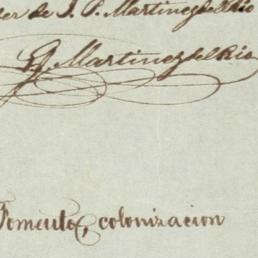 der de J. P. Martinez del Rio
G. Martinez del Rio
Fomento, colonizacion